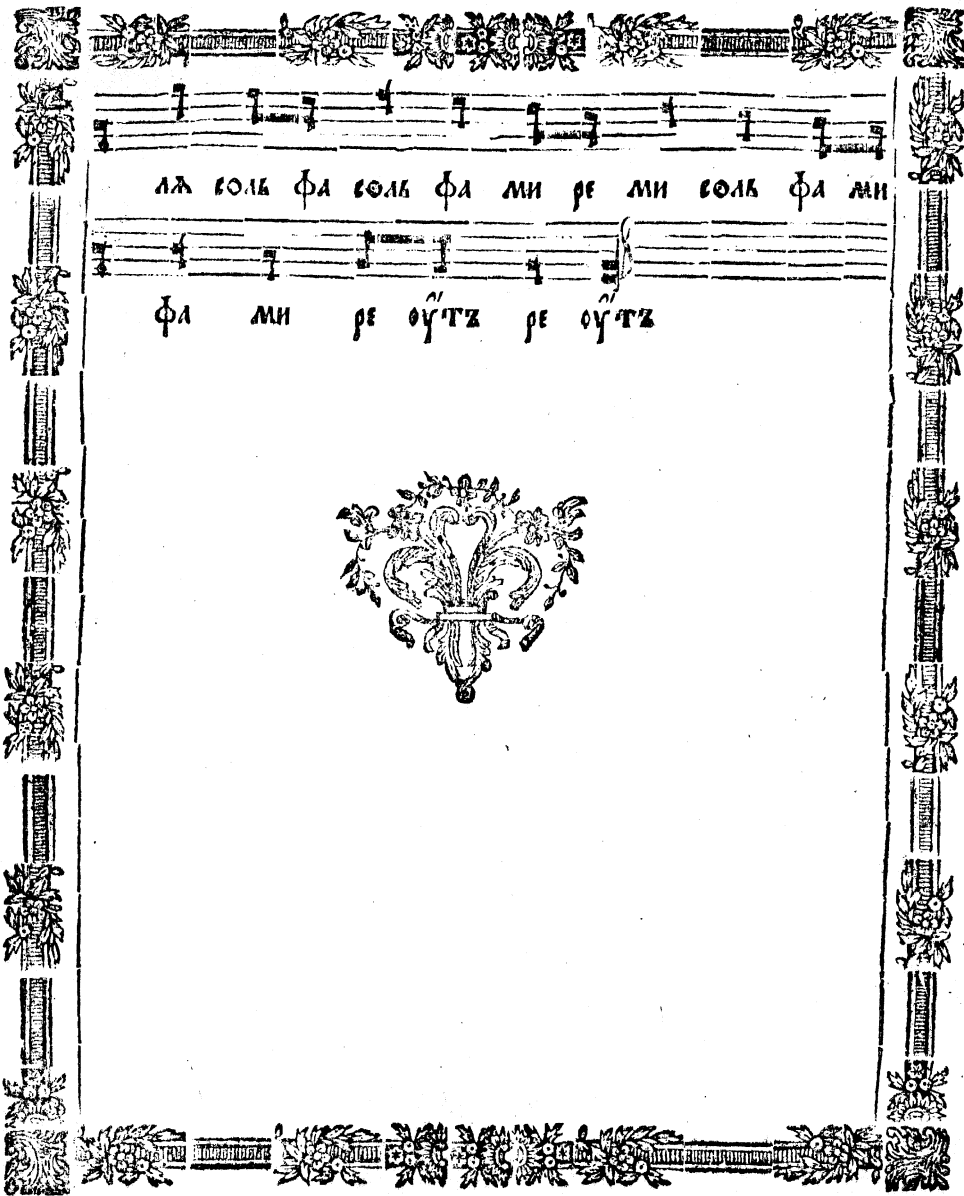 лѧ соль фа соль фа ми ре ми соль фа ми
фа ми ре ᲂу҆́тъ ре ᲂу҆́тъ